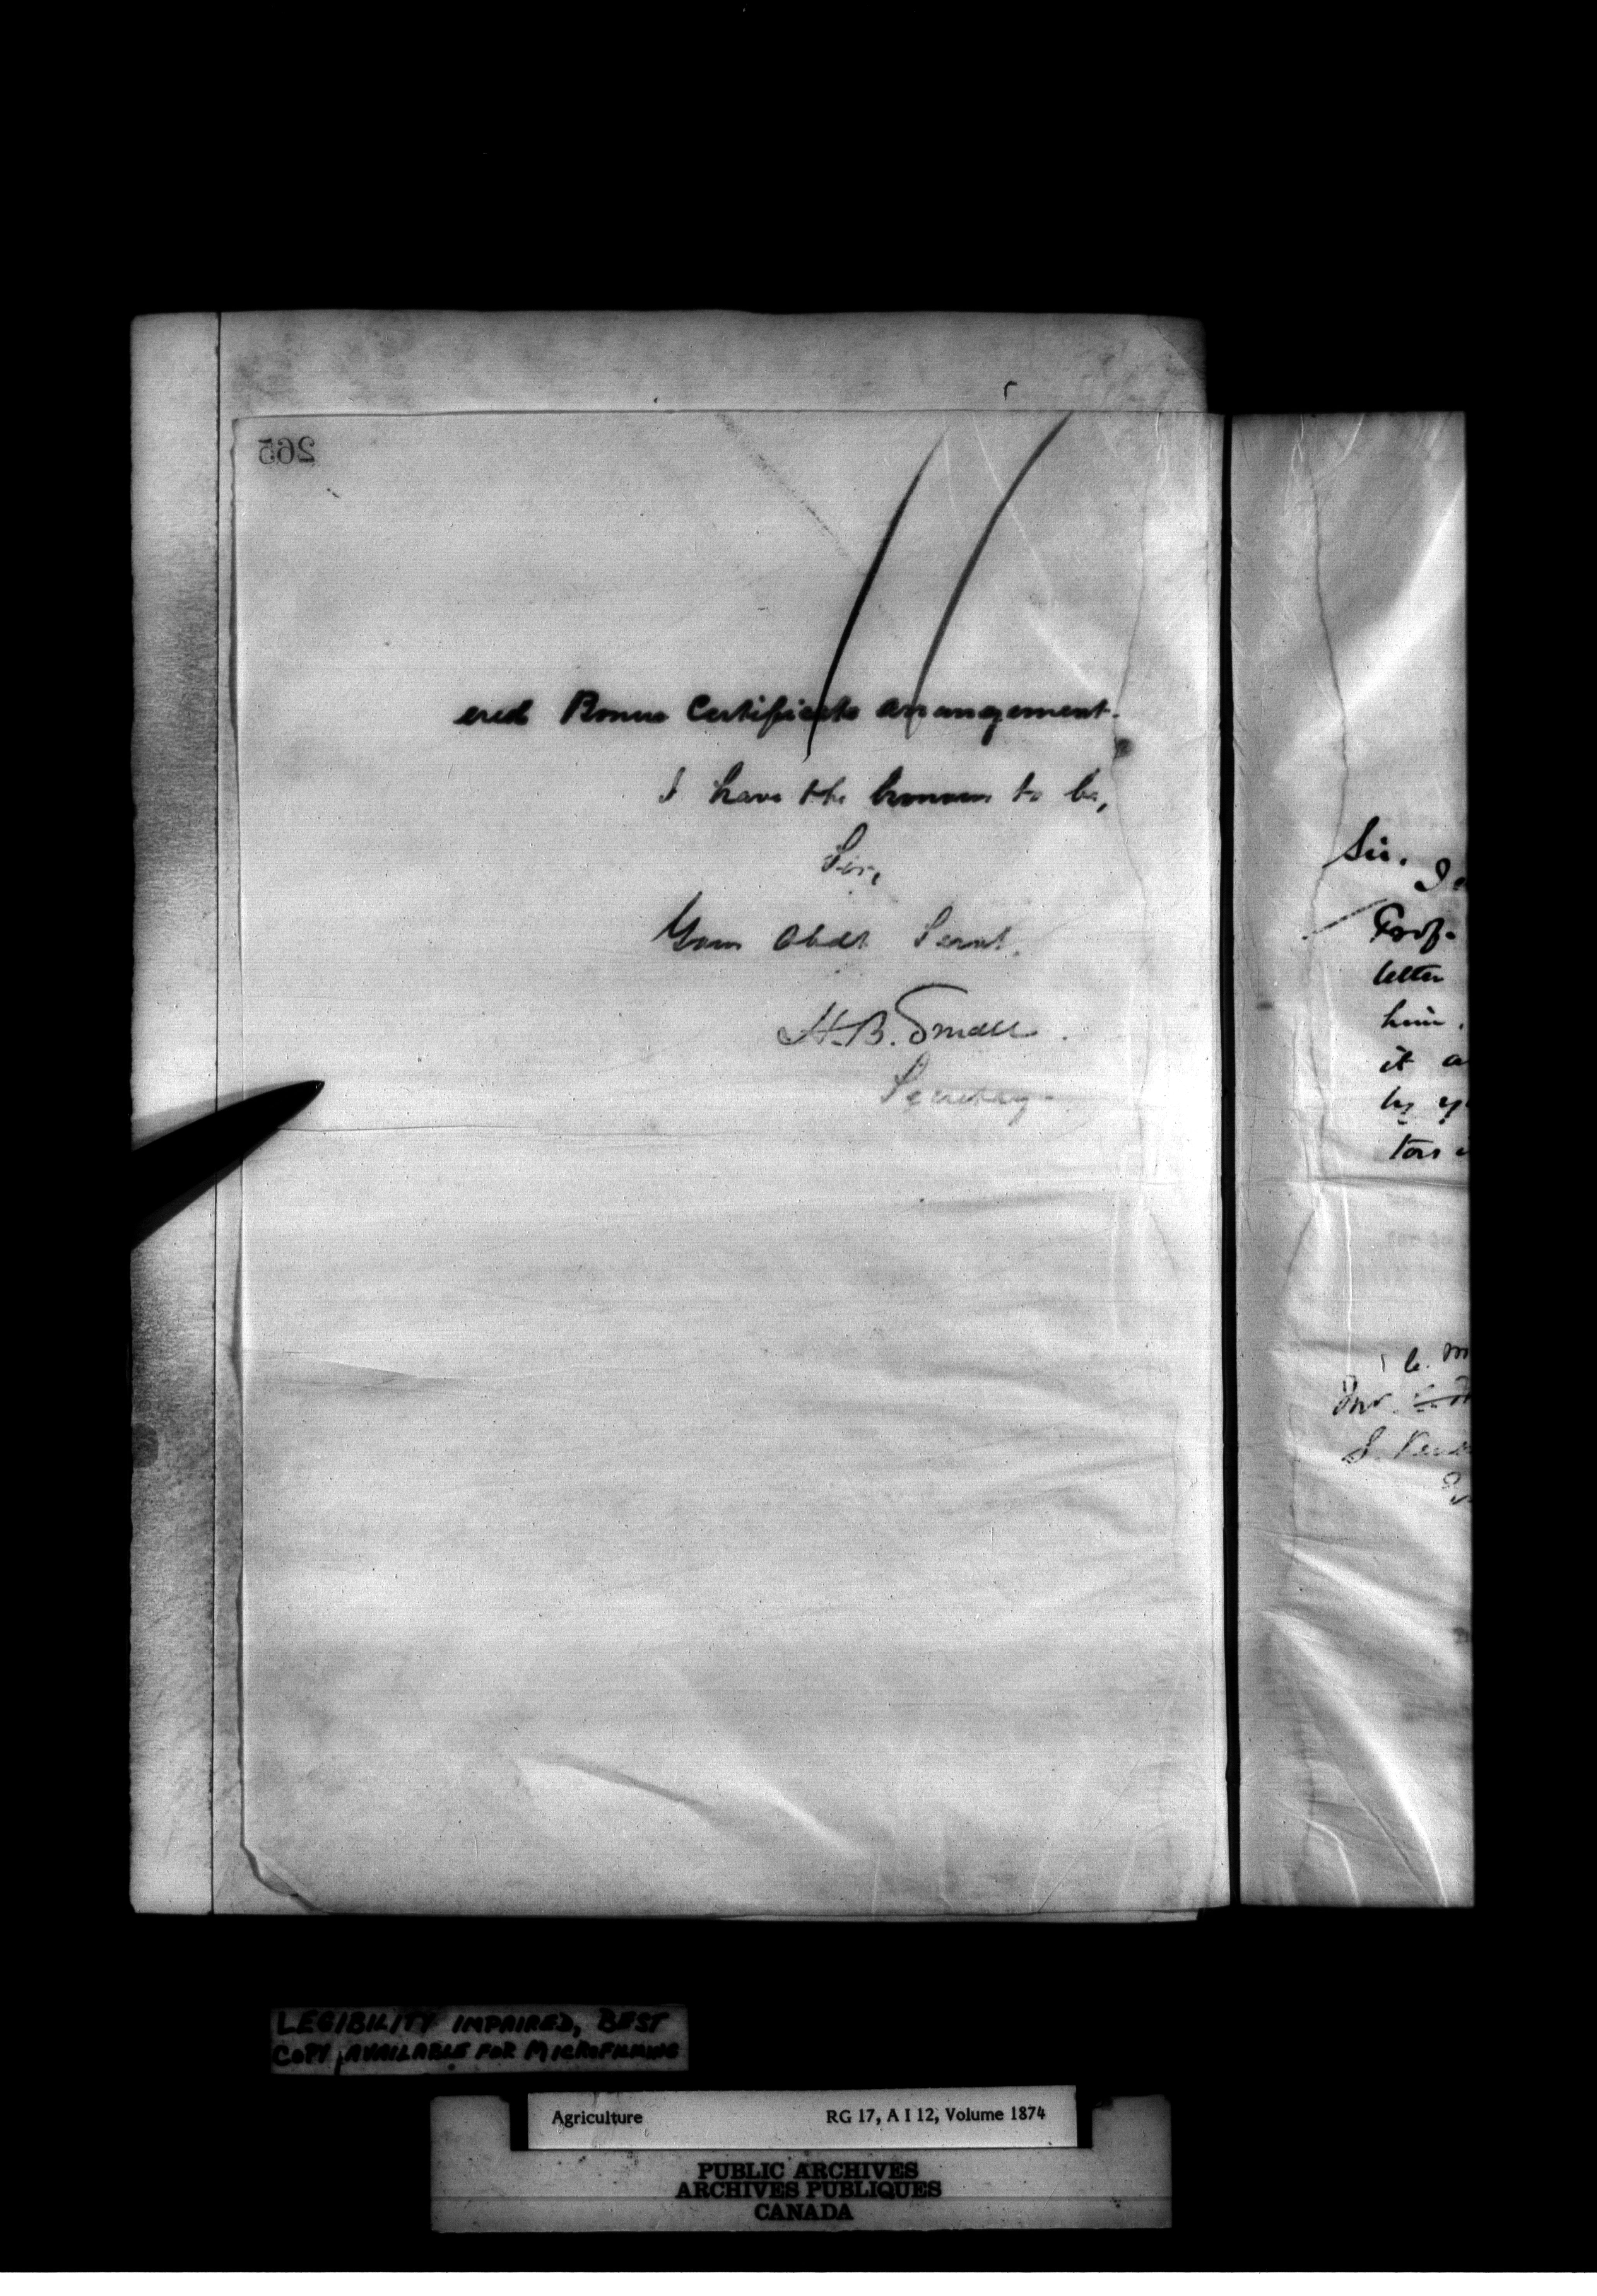 265
ered Bonus Certificate arrangement.
I have the honour to be,
Sir,
Your Obdt Servt.
H. B. Small
Secretary
Sir.
Prof.
letter
him.
it a
by y
tors
LEGIBILITY IMPAIRED, BEST
COPY AVAILABLE FOR MICROFILMING
Agriculture RG 17, A I 12, Volume 1874
PUBLIC ARCHIVES
ARCHIVES PUBLIQUES
CANADA